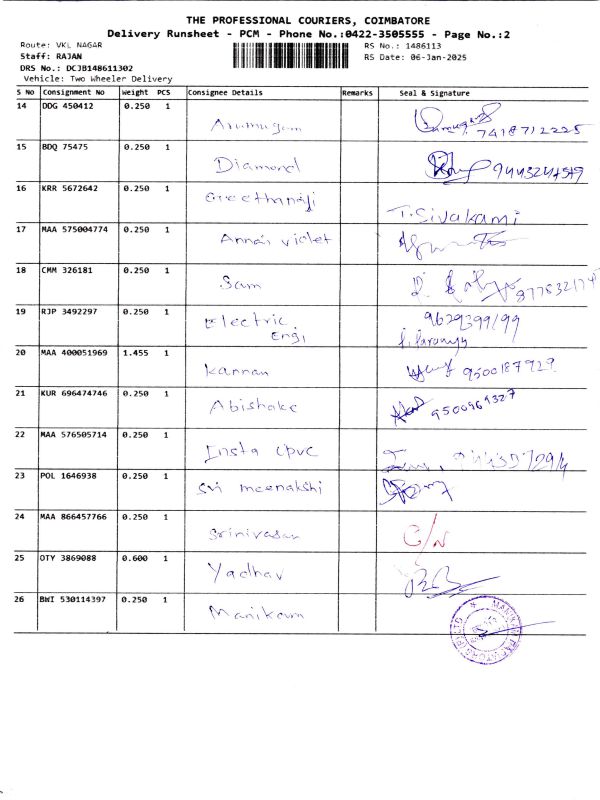 THE PROFESSIONAL COURIERS, COIMBATORE
Delivery Runsheet - PCM - Phone No.:0422-3505555 - Page No.:2
Route: VKL NAGAR
RS No.: 1486113
Staff: RAJAN
RS Date: 06-Jan-2025
DRS No.: DCJB148611302
Vehicle: Two Wheeler Delivery
S No Consignment No Weight PCS Consignee Details Remarks Seal & Signature
14 DDG 450412 0.250 1
Arumugam 7418712225
15 BDQ 75475 0.250 1
Diamond
16 KRR 5672642 0.250 1
Geethanji
T. Sivakami
17 MAA 575004774 0.250 1
Annai violet
18 CMM 326181 0.250 1
Sam
19 RJP 3492297 0.250 1
Electric 9629399199
Engi
20 MAA 400051969 1.455 1
Kannan 9500187929
21 KUR 696474746 0.250 1
Abishake 9500969327
22 MAA 576505714 0.250 1
Insta cpvc
23 POL 1646938 0.250 1
Sri meenakshi
24 MAA 866457766 0.250 1
Srinivasan C/N
25 OTY 3869088 0.600 1
Yadhav
26 BWI 530114397 0.250 1
Manikam